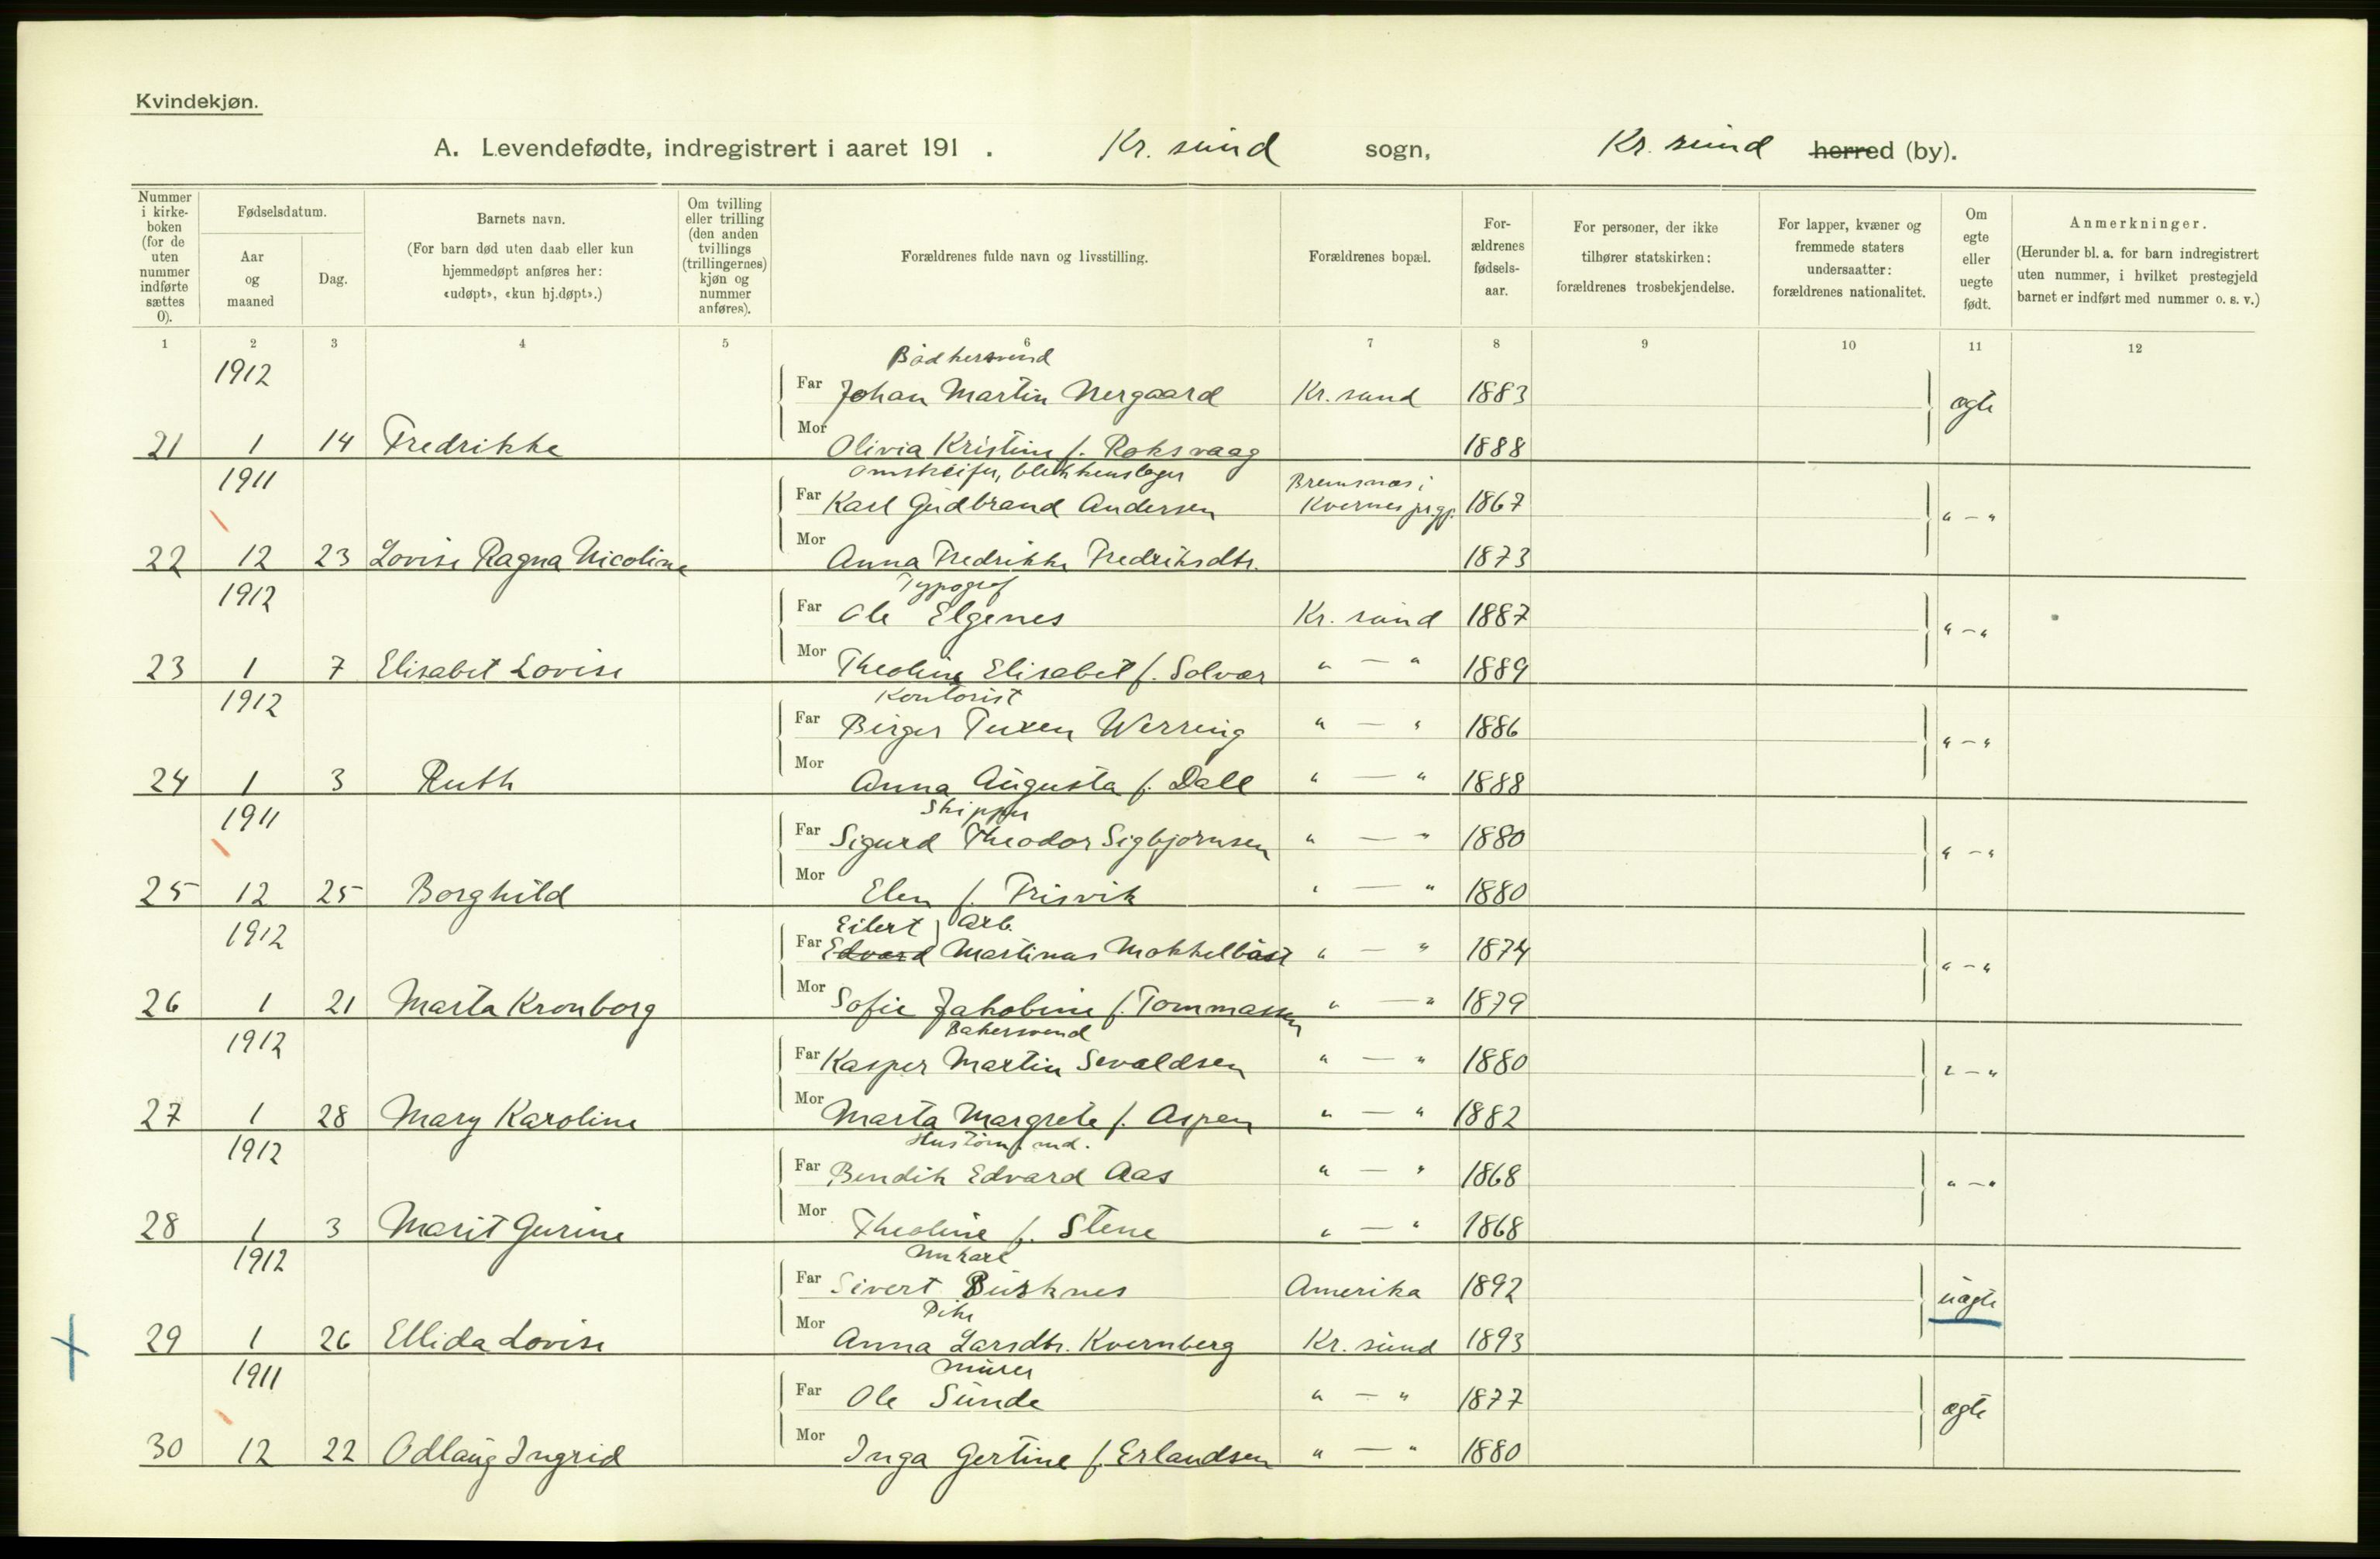 Kvindekjøn.
A. Levendefødte, indregistrert i aaret 191 . Kr. sund sogn, Kr. sund herred (by).
Nummer i kirke-boken (for de uten nummer indførte sættes 0).
Fødselsdatum.
Aar og maaned
Dag.
Barnets navn.
(For barn død uten daab eller kun hjemmedøpt anføres her: «udøpt», «kun hj.døpt».)
Om tvilling eller trilling (den anden tvillings (trillingernes) kjøn og nummer anføres).
Forældrenes fulde navn og livsstilling.
Forældrenes bopæl.
For-ældrenes fødsels-aar.
For personer, der ikke tilhører statskirken: forældrenes trosbekjendelse.
For lapper, kvæner og fremmede staters undersaatter: forældrenes nationalitet.
Om egte eller uegte født.
Anmerkninger.
(Herunder bl. a. for barn indregistrert uten nummer, i hvilket prestegjeld barnet er indført med nummer o. s. v.)
1 2 3 4 5 6 7 8 9 10 11 12
1912
Far Johan Martin Nergaard Kr. sund 1883 ægte
Mor
21 1 14 Fredrikke Olivia Kristine f. Roksvaag 1888
1911 blikkenslager Bremsnæs i
Far Karl Gudbrand Andersen Kvernes prgj. 1867 " - "
Mor
22 12 23 Lovise Ragna Nicoline Anna Fredrikke Fredriksdtr. 1873
1912 Typograf
Far Ole Elgenes Kr. sund 1887 " - "
Mor
23 1 7 Elisabet Lovise Theoline Elisabet f. Solvær " - " 1889
1912 Kontorist
Far Birger Tuxen Werring " - " 1886 " - "
Mor
24 1 3 Ruth Anna Augusta f. Dall " - " 1888
1911 Skipper
Far Sigurd Theodor Sigbjørnsen " - " 1880 " - "
Mor
25 12 25 Borghild Elen f. Frisvik " - " 1880
1912 Eilert Arb.
Far Edvard Martinus Mokkelbust " - " 1874 " - "
Mor
26 1 21 Marta Kronborg Sofie Jakobine f. Tommassen " - " 1879
1912 Bakersvend
Far Kasper Martin Sevaldsen " - " 1880 " - "
Mor
27 1 28 Mary Karoline Marta Margrete f. Aspen " - " 1882
1912
Far Bendik Edvard Aas " - " 1868 " - "
Mor
28 1 3 Marit Gurine Theoline f. Stene " - " 1868
1912 Unkarl
Far Sivert Busknes Amerika 1892 uægte
Mor Pike
29 1 26 Ellida Lovise Anna Larsdtr. Kvernberg Kr. sund 1893
1911 Murer
Far Ole Sunde " - " 1877 ægte
Mor
30 12 22 Odlaug Ingrid Inga Gertine f. Erlandsen " - " 1880